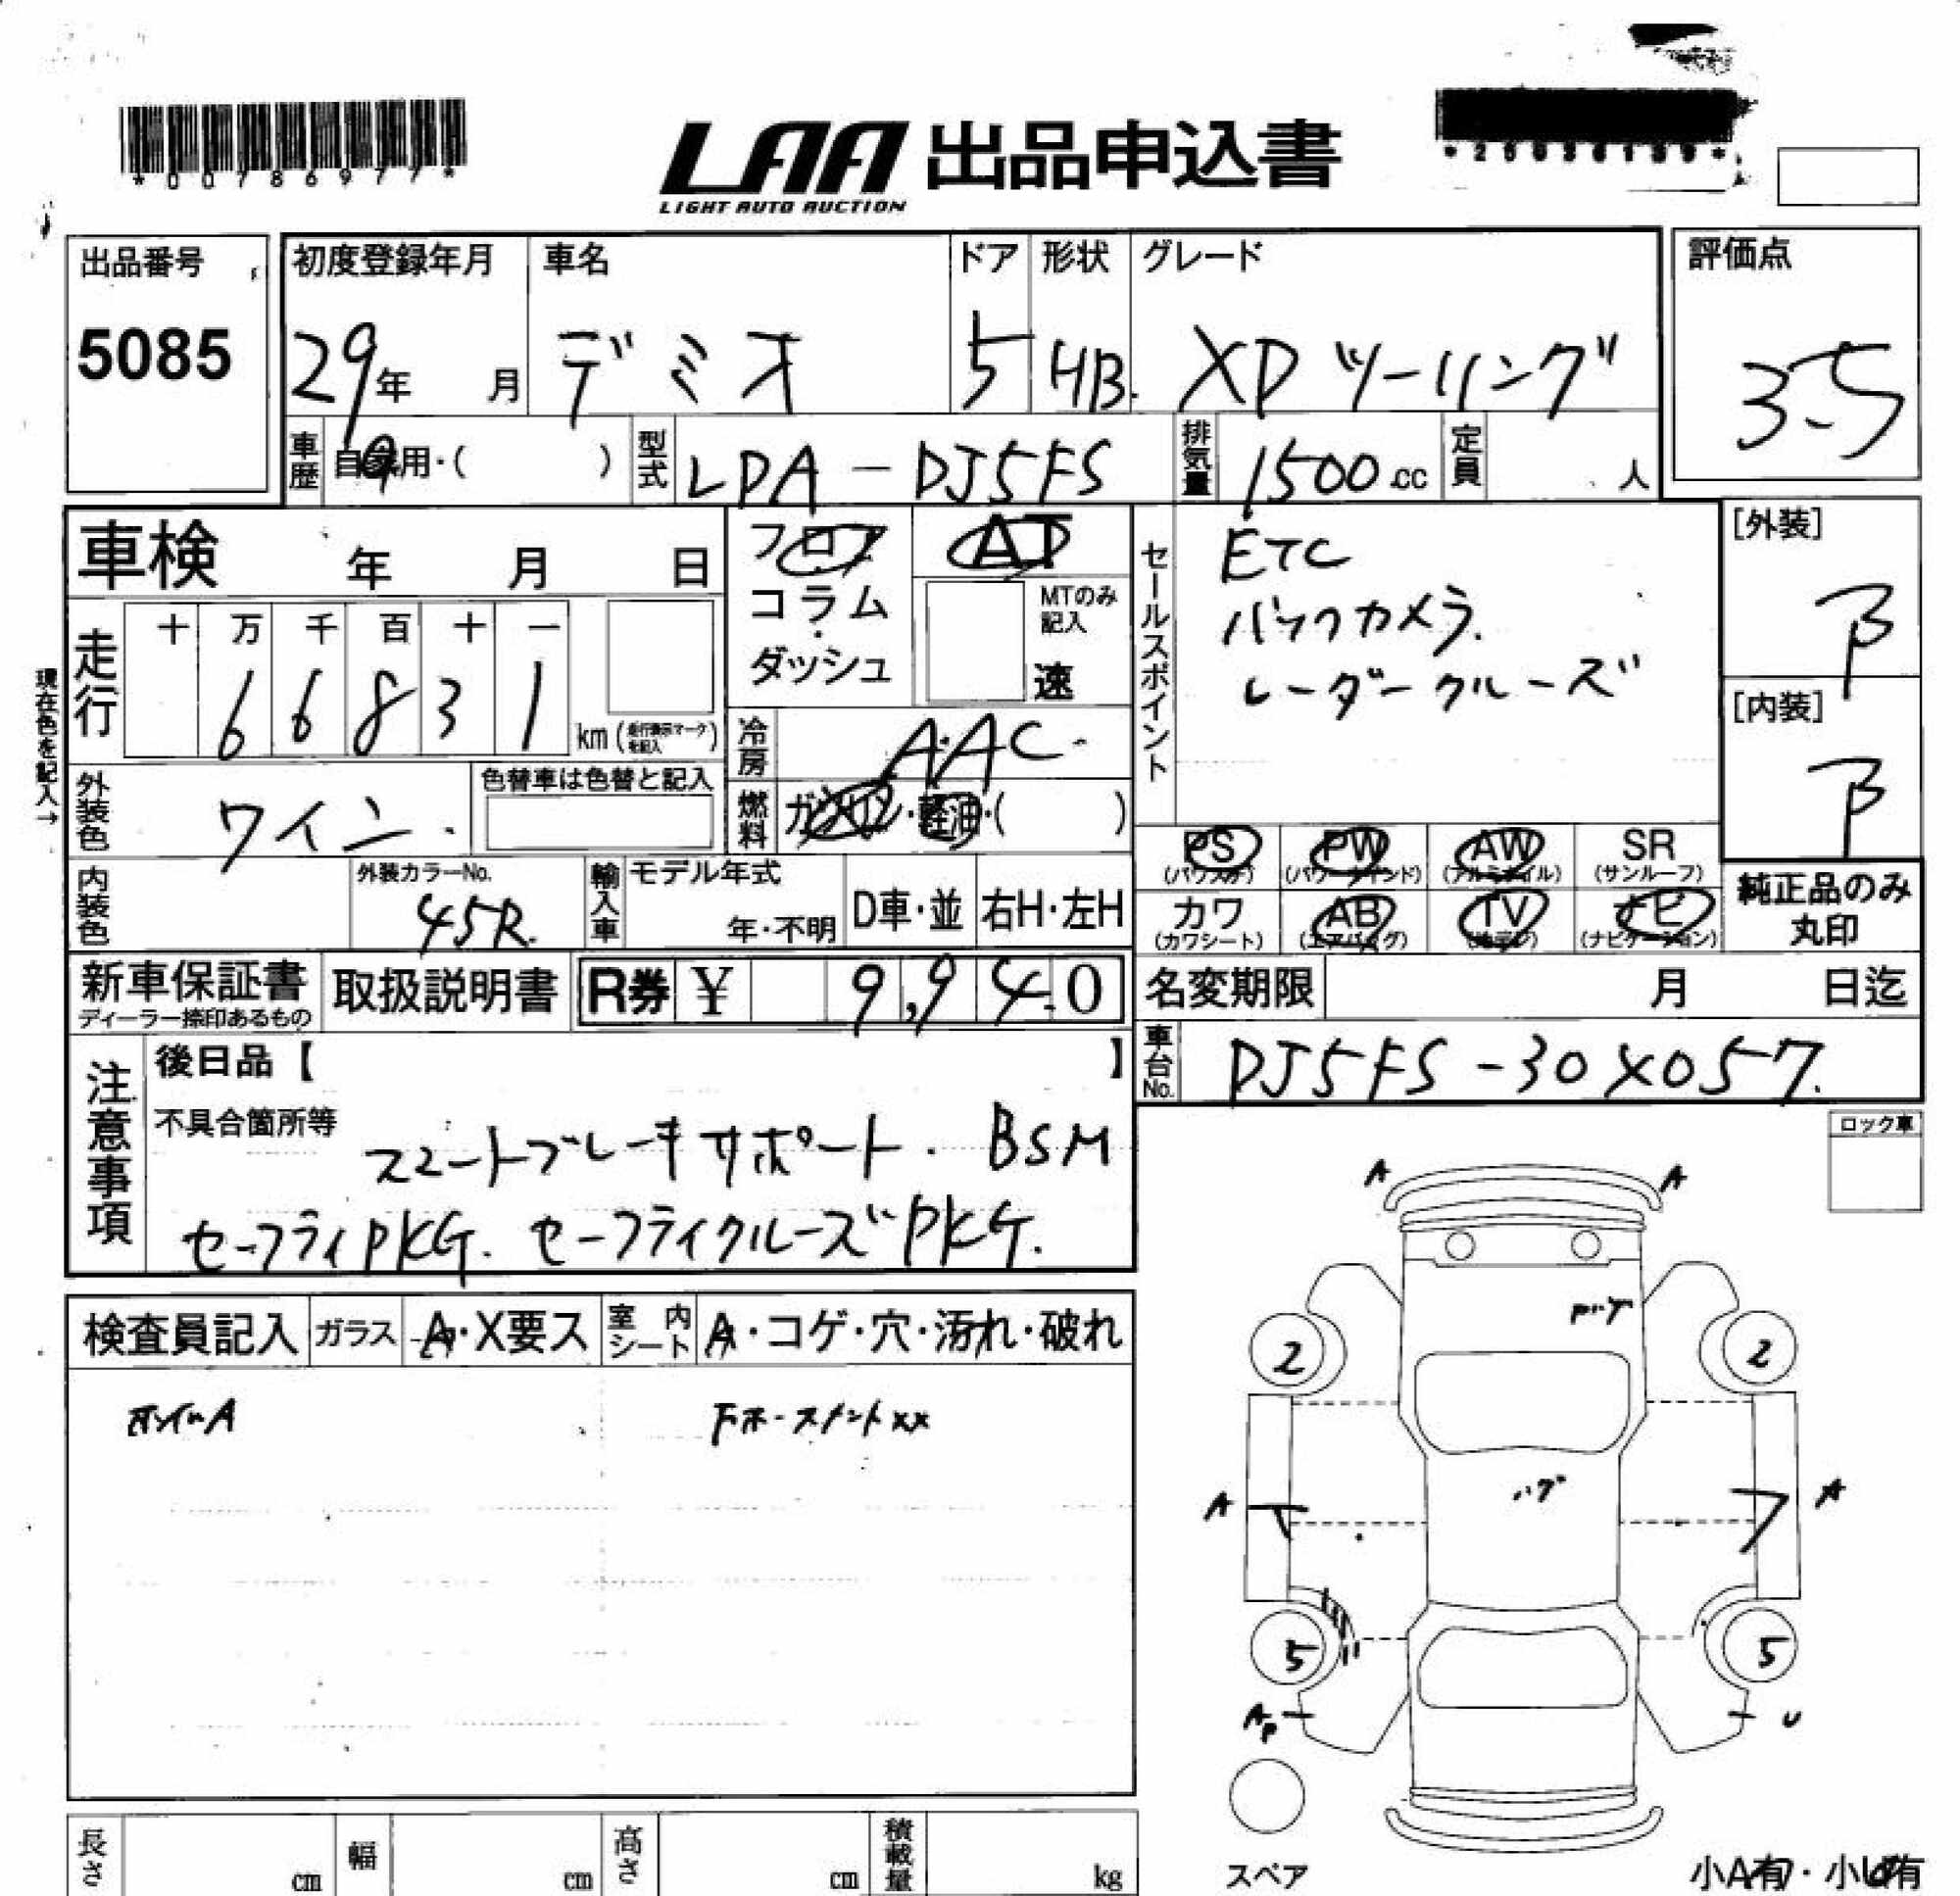 *00786977*
LAA 出品申込書
LIGHT AUTO AUCTION
出品番号
5085
初度登録年月
29年 月
車名
デミオ
ドア
5
形状
HB.
グレード
XD ツーリング
評価点
3.5
車歴 自家用・( )
型式 LDA-DJ5FS
排気量 1500 cc
定員 人
車検 年 月 日
フロア
コラム
・
ダッシュ
AT
MTのみ記入
速
セールスポイント
ETC
バックカメラ.
レーダークルーズ
[外装]
β
[内装]
β
現在色を記入→
走行
十 万 千 百 十 一
6 6 8 3 1
km (走行表示マークを記入)
冷房 AAC
燃料 ガソリン・軽油・( )
外装色 ワイン.
色替車は色替と記入
内装色
外装カラーNo.
45R.
輸入車
モデル年式
年・不明
D車・並
右H・左H
PS (パワステ)
PW (パワーウインド)
AW (アルミホイル)
SR (サンルーフ)
カワ (カワシート)
AB (エアバッグ)
TV (地デジ)
ナビ (ナビゲーション)
純正品のみ
丸印
新車保証書
ディーラー捺印あるもの
取扱説明書
R券 ¥ 9,940
名変期限 月 日迄
車台No. DJ5FS-30X057.
注意事項
後日品【 】
不具合箇所等
スマートブレーキサポート. BSM
セーフティPKG. セーフティクルーズPKG.
ロック車
検査員記入
ガラス A・X要ス
室内シート A・コゲ・穴・汚れ・破れ
ホイールA
A A
2 2
ハゲ
A A
5 5
AP U
スペア
長さ cm
幅 cm
高さ cm
積載量 kg
小A有・小U有